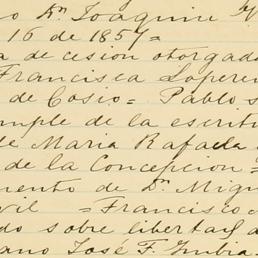 o Dn Joaquin
16 de 1857=
a de cesion otorgada
Francisca Loperen
de Cosio= Pablo s
mple de la escritu
de Maria Rafaela
de la Concepcion=
mento de Dn Migu
vil = Francisco
do sobre libertad d
ano José F.